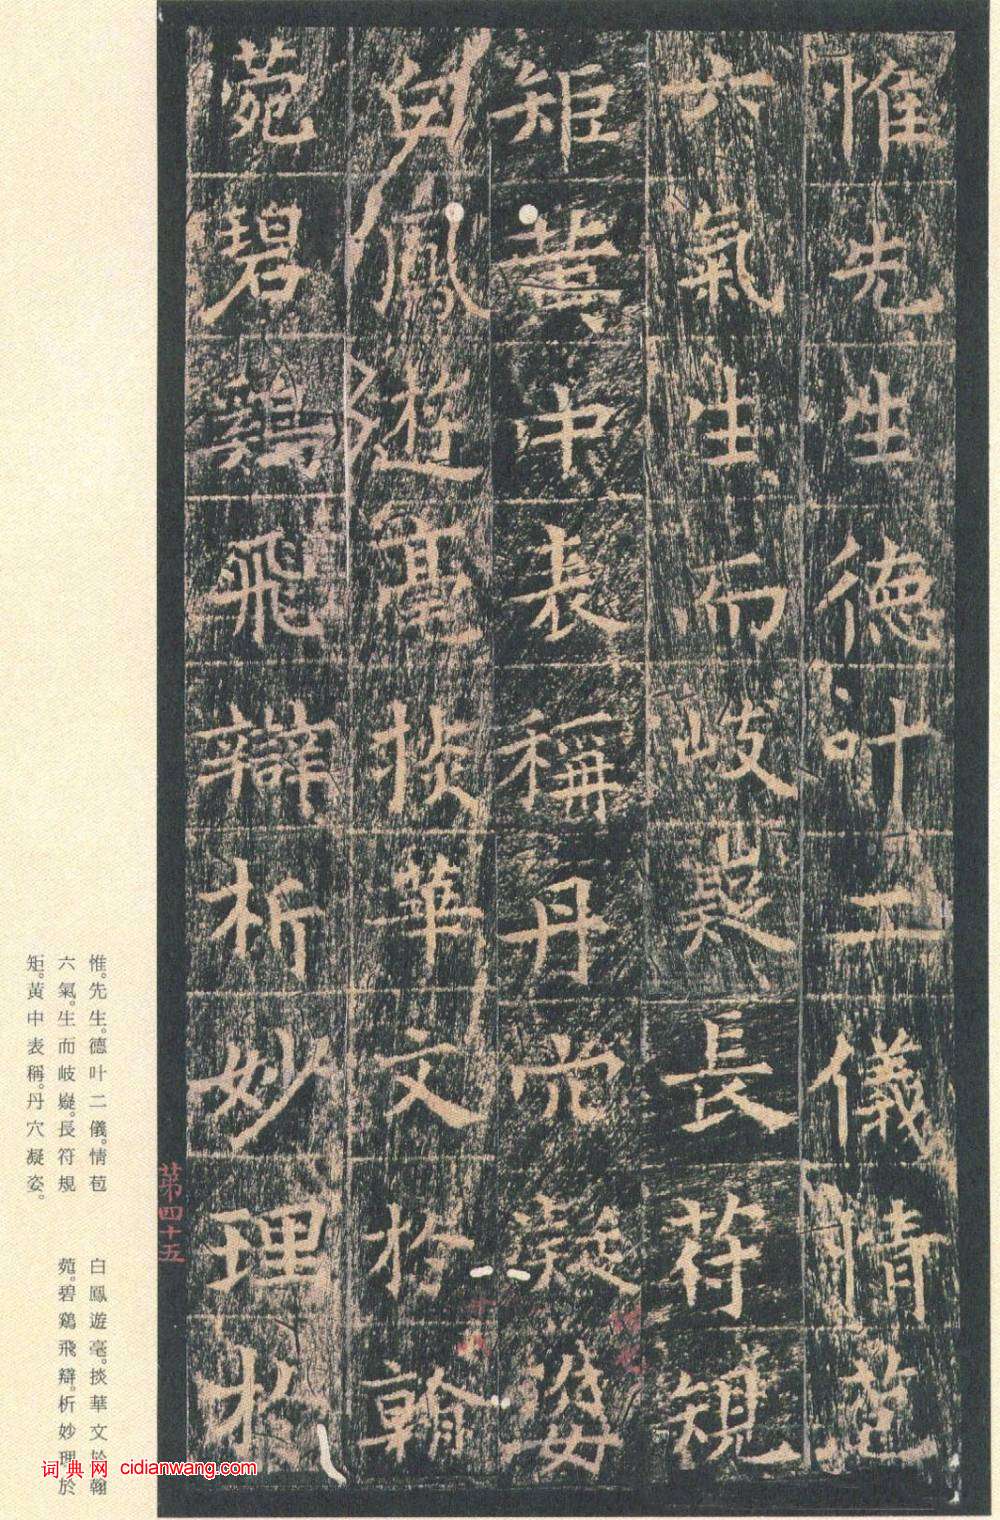 惟先生德叶二儀情苞
六氣生而岐嶷長符規
矩黃中表稱丹穴凝姿
白鳳遊毫掞華文於翰
菀碧鷄飛辯析妙理於
第四十五
惟。先生。德叶二儀。情苞
六氣。生而岐嶷。長符規
矩。黃中表稱。丹穴凝姿。
白鳳遊毫。掞華文於翰
菀。碧鷄飛辯。析妙理於
词典网 cidianwang.com